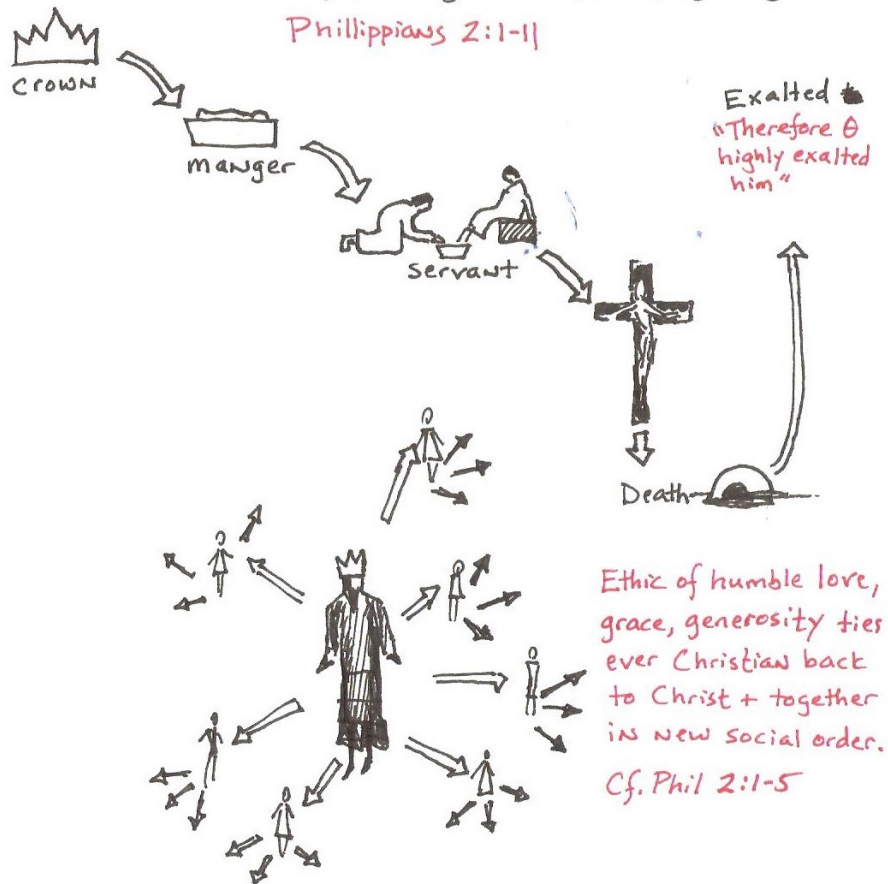 Phillippians 2:1-11
crown
manger
servant
Exalted
"Therefore θ
highly exalted
him"
Death
Ethic of humble love,
grace, generosity ties
ever Christian back
to Christ + together
in new social order.
Cf. Phil 2:1-5